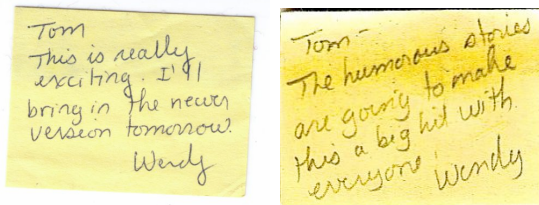 Tom
This is really
exciting. I'll
bring in the newer
version tomorrow.
Wendy
Tom-
The humorous stories
are going to make
this a big hit with
everyone!
Wendy